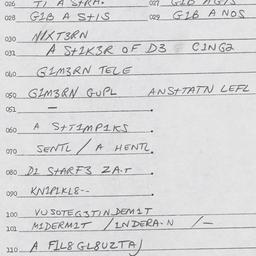 026 TI A STRA. 027 GIB AGIS
028 GIB A STIS 029 GIB A NOS
030 NIXT3RN
031 A STIK3R OF D3 CING2
040 GIM3RN TELE
050 GIM3RN GUPL ANSTTATN LEFL
051 — .
060 A STTIMPIKS .
070 SENTL / A HENTL.
080 DI STARF3 ZA.T
090 KNIPIKL8--
100 VUSOTEG3TIN DEMIT
101 MIDERMIT / INDERA.N /—
110 A FIL8 GL8UZTAJ